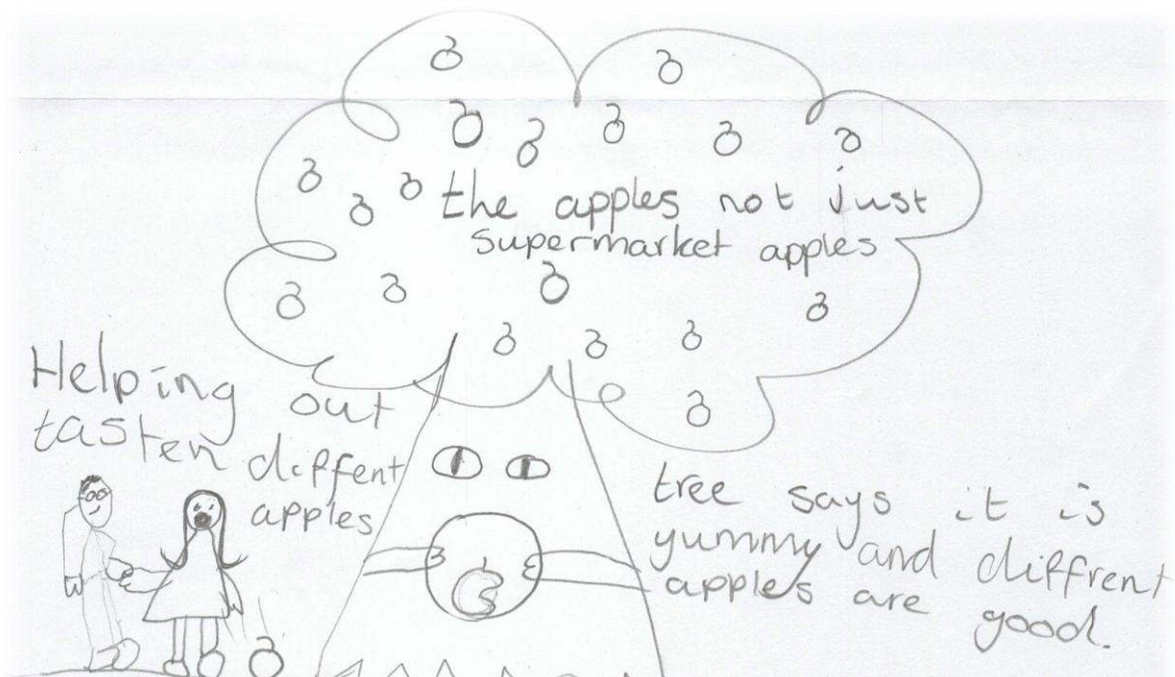 the apples not just
supermarket apples
Helping out
tasten diffent
apples
tree says it is
yummy and diffrent
apples are good.